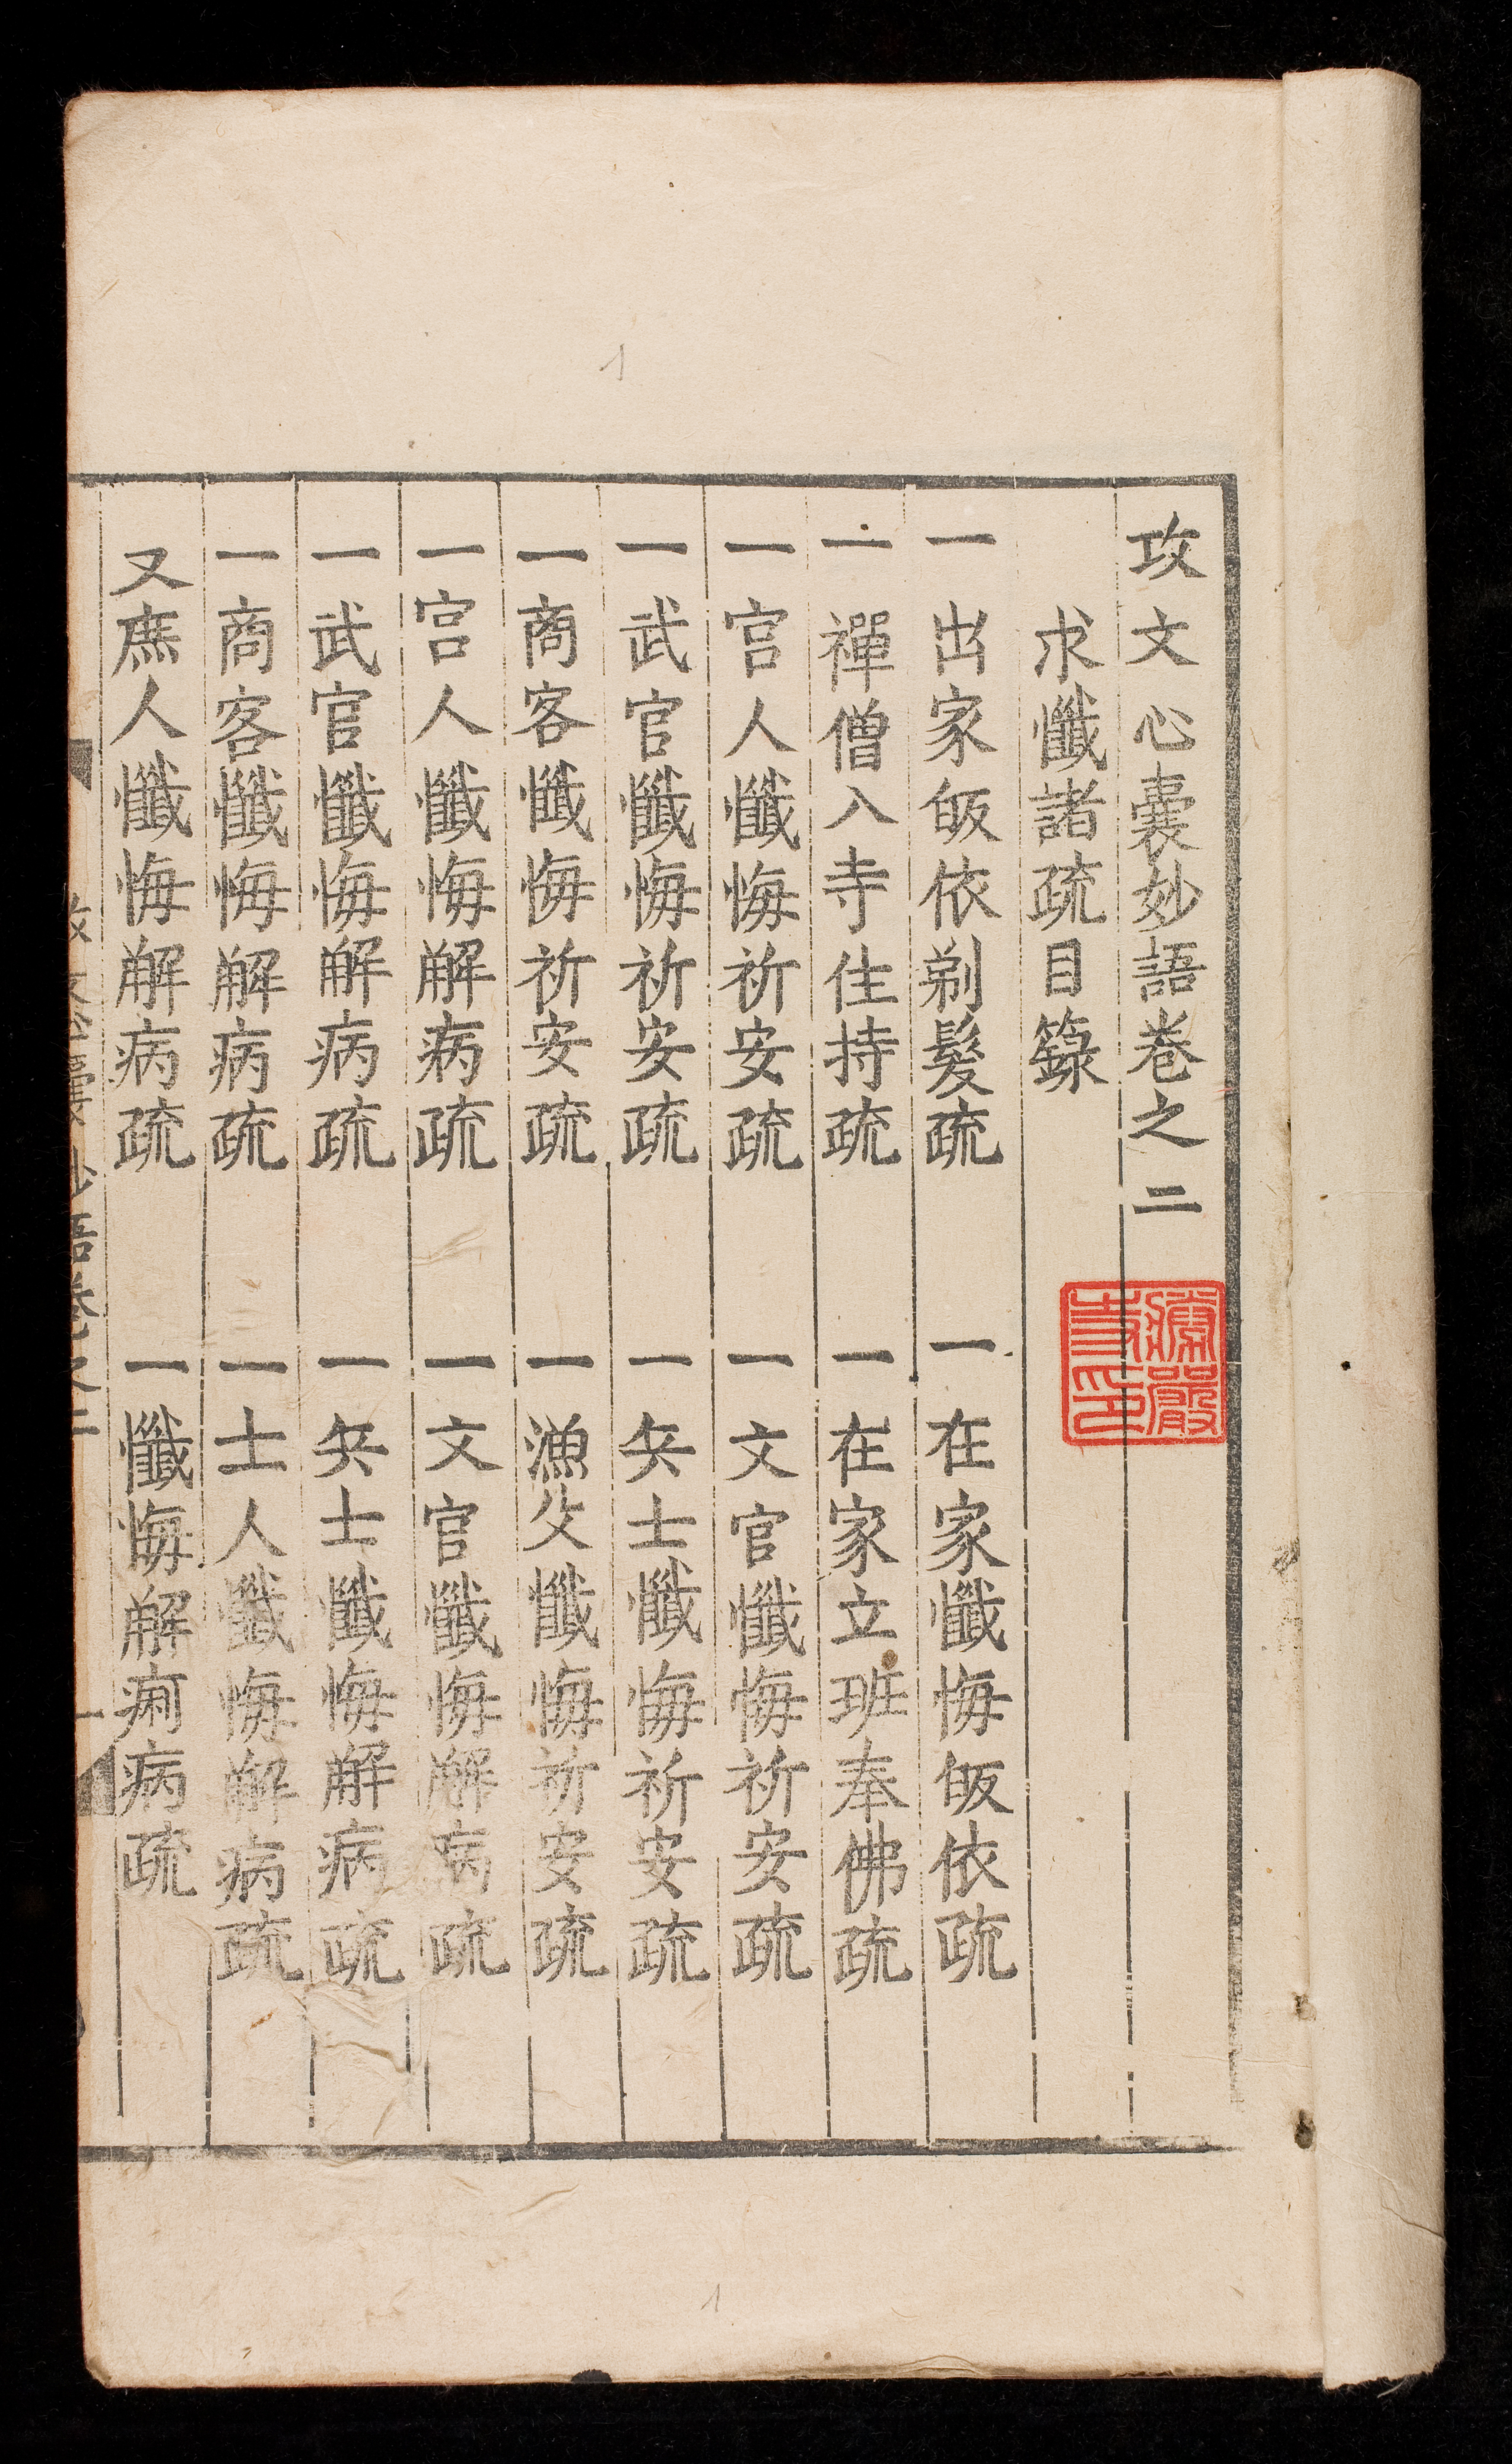 攻文心囊妙語卷之二
求懺諸疏目籙
一出家皈依剃髮疏 一在家懺悔皈依疏
一禪僧入寺住持疏 一在家立班奉佛疏
一宫人懺悔祈安疏 一文官懺悔祈安疏
一武官懺悔祈安疏 一兵士懺悔祈安疏
一商客懺悔祈安疏 一漁父懺悔祈安疏
一宫人懺悔解病疏 一文官懺悔解病疏
一武官懺悔解病疏 一兵士懺悔解病疏
一商客懺悔解病疏 一士人懺悔解病疏
又庶人懺悔解病疏 一懺悔解痾病疏